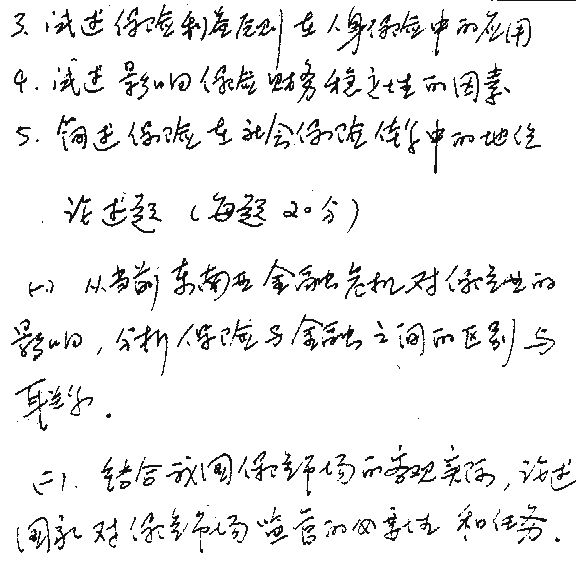 3. 试述保险利益原则在人身保险中的应用
4. 试述影响保险财务稳定性的因素
5. 简述保险在社会保险体系中的地位
论述题（每题20分）
(一) 从当前东南亚金融危机对保险业的
影响，分析保险与金融之间的区别与
联系。
(二). 结合我国保险市场的客观实际，论述
国家对保险市场监管的必要性和任务.